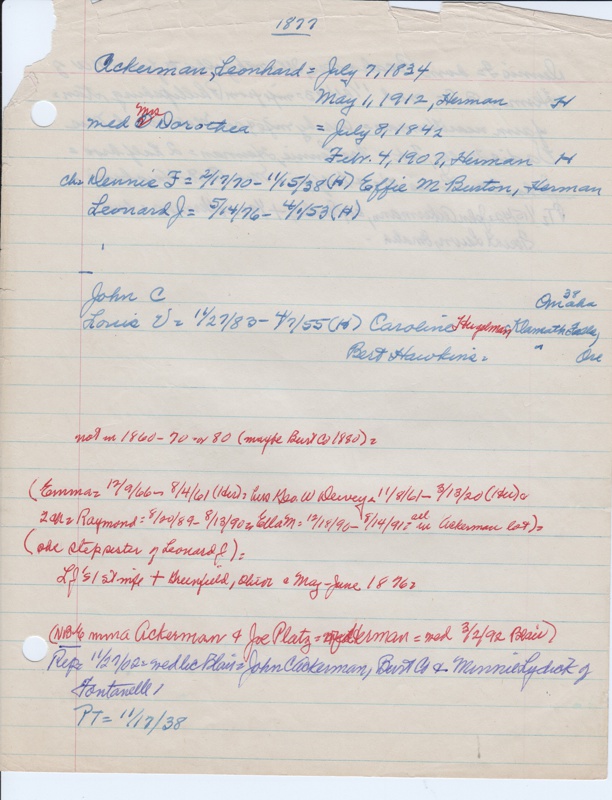 1877
Ackerman, Leonhard = July 7, 1834
May 1, 1912, Herman H
med Mrs Dorothea = July 8, 1842
Febr. 4, 1907, Herman H
ch = Dennie F = 2/17/70 - 11/15/38 (H) Effie M Burton, Herman
Leonard J = 5/14/76 - 4/1/53 (H)
John C Omaha 38
Louis V = 11/27/83 - 4/7/55 (H) Caroline Klamath Falls,
Bert Hawkins = " Ore
not in 1860 - 70 or 80 (maybe Burt Co 1880) =
(Emma = 12/9/66 - 8/4/61 Geo. W Dewey = 11/8/61 - 3/13/20
2 ch = Raymond = 8/20/89 - 8/13/90 = Ella M = 12/18/90 - 8/14/91 = all in Ackerman lot) =
(she stepsister of Leonard J) =
LJ's 1st wife + Greenfield, Ohio = May-June 1876 =
(NB = Emma Ackerman & Joe Platz = Herman = med 3/2/92 Blair)
Rep = 11/27/02 = med lic Blair = John C Ackerman, Burt Co & Minnie Lydick of
Fontanelle
PT = 11/17/38